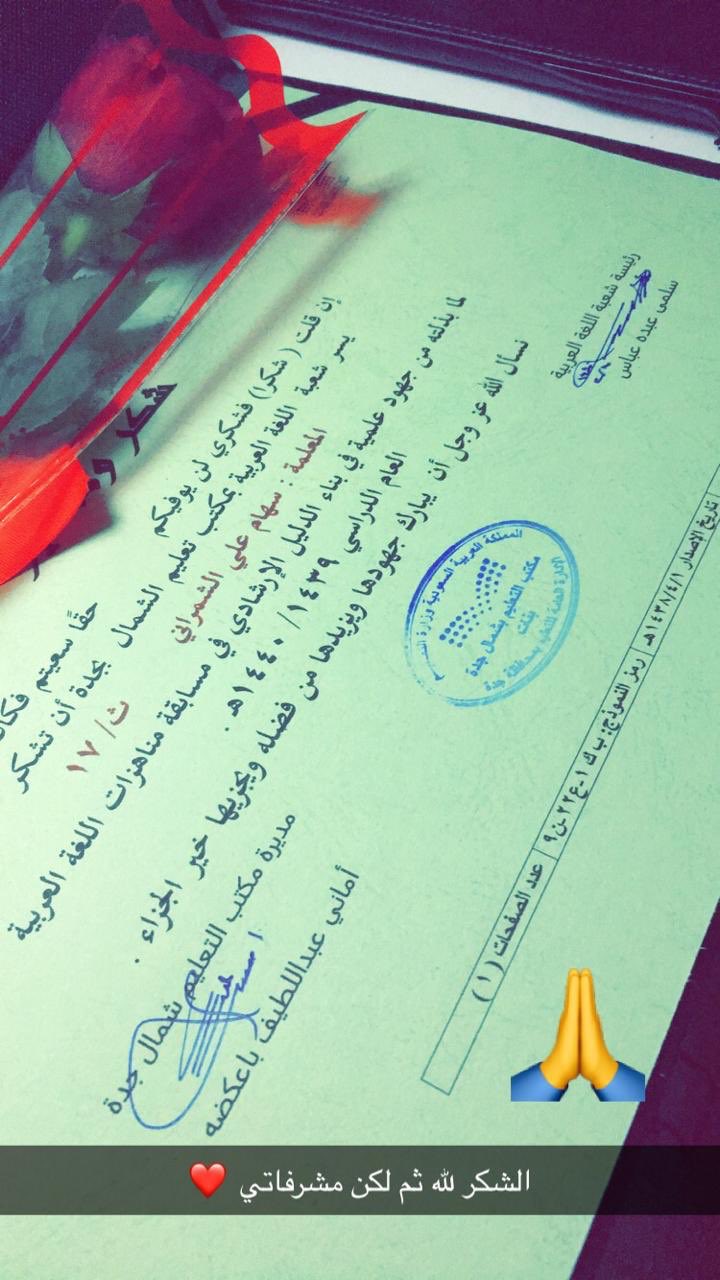 شكر
إن قلت (شكرا) فشكري لن يوفيكم
حقًا سعيتم
يسر شعبة اللغة العربية بمكتب تعليم الشمال بجدة أن تشكر
المعلمة : سهام علي الشمراني
ث/ ١٧
لما بذلته من جهود علمية في بناء الدليل الإرشادي في مسابقة مناهزات اللغة العربية
العام الدراسي ١٤٣٩ / ١٤٤٠هـ .
نسأل الله عز وجل أن يبارك جهودها ويزيدها من فضله ويجزيها خير الجزاء .
رئيسة شعبة اللغة العربية
سلمى عبده عباس
مديرة مكتب التعليم شمال جدة
أماني عبداللطيف باعكضه
المملكة العربية السعودية وزارة
مكتب التعليم بشمال جدة
بنات
الإدارة العامة للتعليم بمحافظة جدة
تاريخ الإصدار ١٤٣٨/٤/١هـ
رمز النموذج: ب ك ١-ع٢٢-ن٩
عدد الصفحات (١)
الشكر لله ثم لكن مشرفاتي ❤️